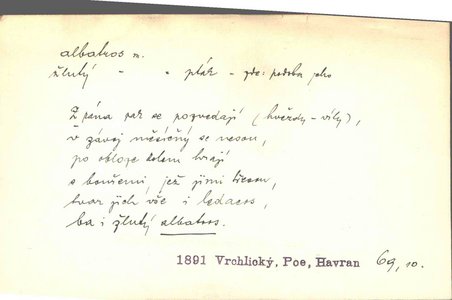 albatros m.
žlutý - " pták - zde: podoba jeho
Z rána zas se pozvedají (hvězdy-víly),
v závoj měsíčný se nesou,
po obloze kolem hrají
s bouřemi, jež jimi třesou,
tvar jich vše i ledacos,
ba i žlutý albatros.
1891 Vrchlický, Poe, Havran 69, 10.